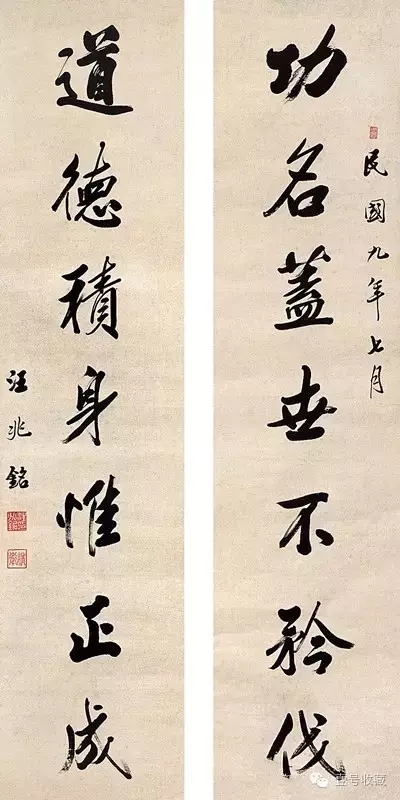 民國九年七月
功名蓋世不矜伐
道德積身惟正成
汪兆銘
壹号收藏